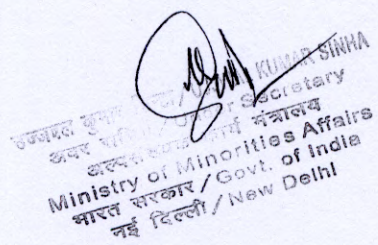 उज्ज्वल कुमार / KUMAR SINHA
अवर सचिव / Under Secretary
अल्पसंख्यक कार्य मंत्रालय
Ministry of Minorities Affairs
भारत सरकार / Govt. of India
नई दिल्ली / New Delhi